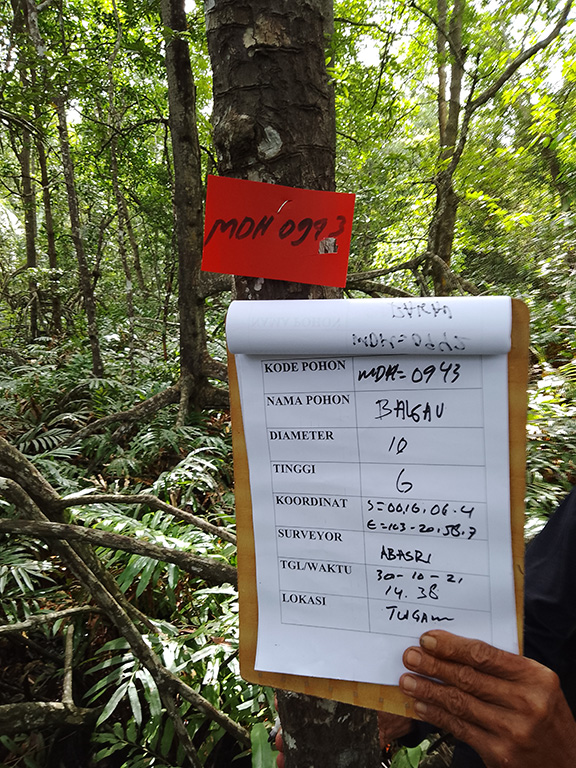 MDH 0943
KODE POHON MDH=0943
NAMA POHON BAKAU
DIAMETER 10
TINGGI 6
KOORDINAT S=00,16,06.4
E=103-20,58,7
SURVEYOR ABASRI
TGL/WAKTU 30-10-21
14.38
LOKASI